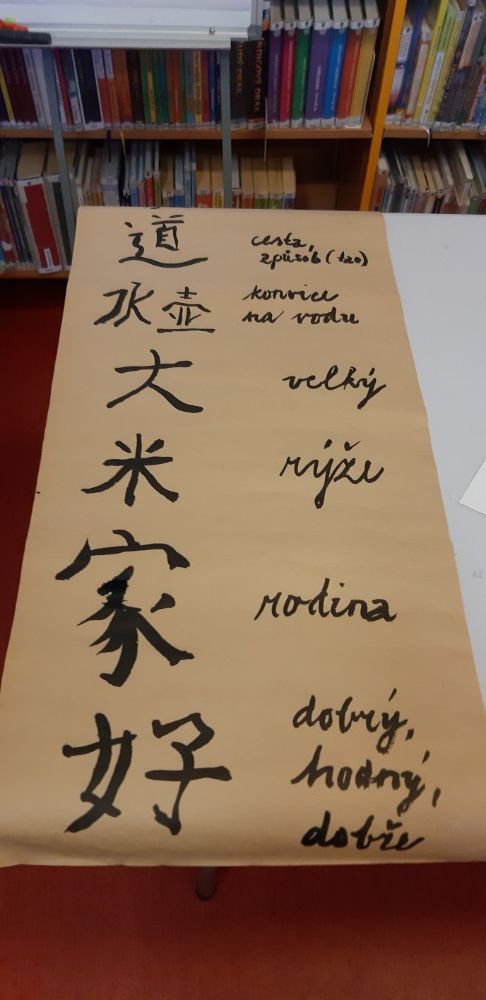 道 cesta,
způsob (tao)
水壶 konvice
na vodu
大 velký
米 rýže
家 rodina
好 dobrý,
hodný,
dobře